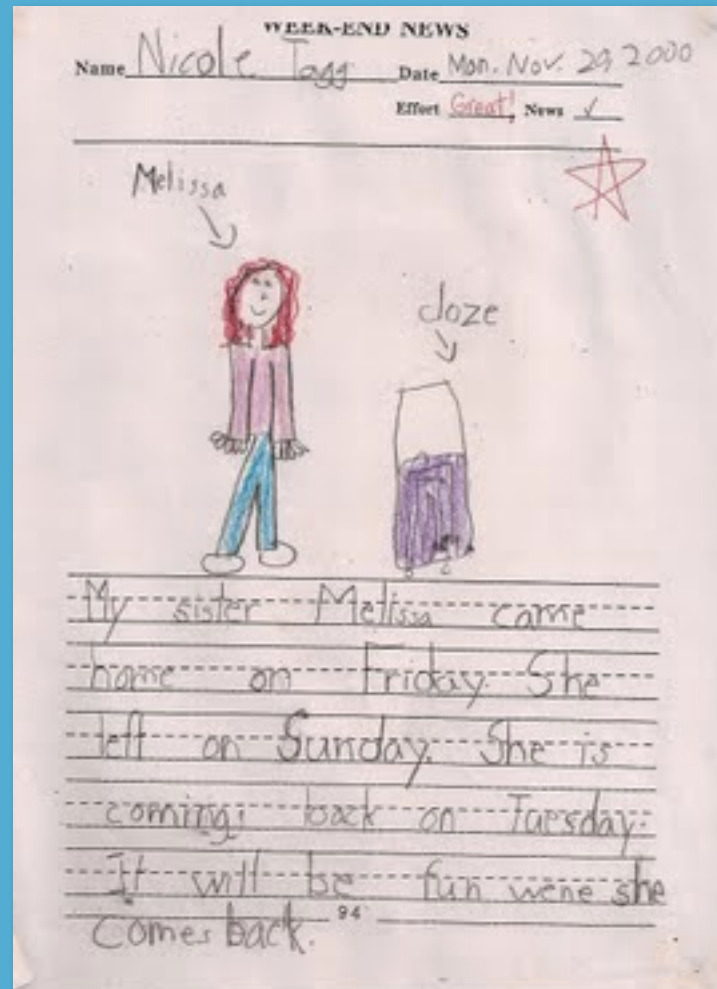 WEEK-END NEWS
Name Nicole Tagg Date Mon. Nov. 29 2000
Effort Great! News ✓
Melissa
cloze
My sister Melissa came
home on Friday. She
left on Sunday. She is
coming back on Tuesday.
It will be fun wene she
94
comes back.